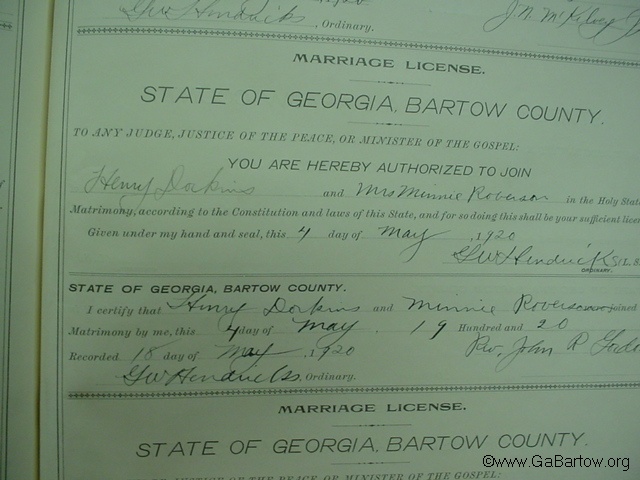 1920
Geo W Hendricks , Ordinary. J. N. McKelvey
MARRIAGE LICENSE.
STATE OF GEORGIA, BARTOW COUNTY.
TO ANY JUDGE, JUSTICE OF THE PEACE, OR MINISTER OF THE GOSPEL:
YOU ARE HEREBY AUTHORIZED TO JOIN
Henry Dorkins and Mrs Minnie Roverson in the Holy State
Matrimony, according to the Constitution and laws of this State, and for so doing this shall be your sufficient lice
Given under my hand and seal, this 4 day of May , 1920
GW Hendricks (L. S.
ORDINARY.
STATE OF GEORGIA, BARTOW COUNTY.
I certify that Henry Dorkins and Minnie Roverson joined
Matrimony by me, this 4 day of May . 19 Hundred and 20
Recorded 18 day of May , 1920 Rev. John R
GW Hendricks , Ordinary.
MARRIAGE LICENSE.
STATE OF GEORGIA, BARTOW COUNTY.
JUSTICE OF THE PEACE, OR MINISTER OF THE GOSPEL:
©www.GaBartow.org